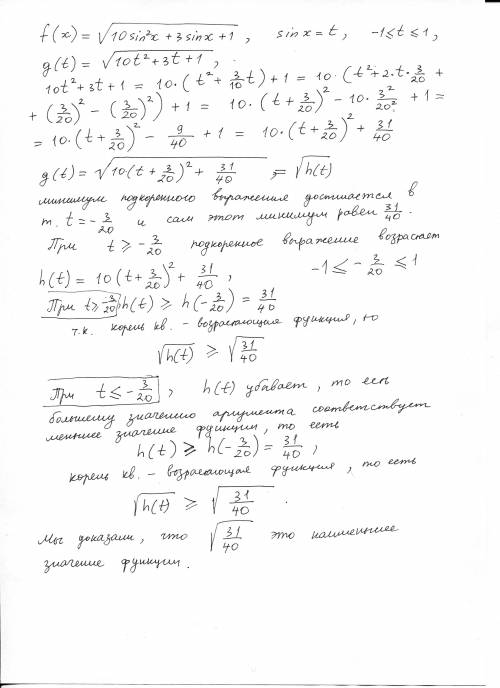 f(x) = √(10 sin²x + 3 sin x + 1), sin x = t, -1 ≤ t ≤ 1,
g(t) = √(10t² + 3t + 1),
10t² + 3t + 1 = 10·(t² + 3/10 t) + 1 = 10·(t² + 2·t·3/20 +
+ (3/20)² - (3/20)²) + 1 = 10·(t + 3/20)² - 10·3²/20² + 1 =
= 10·(t + 3/20)² - 9/40 + 1 = 10·(t + 3/20)² + 31/40
g(t) = √(10(t + 3/20)² + 31/40) = √h(t)
минимум подкоренного выражения достигается в
т. t = -3/20 и сам этот минимум равен 31/40.
При t ≥ -3/20 подкоренное выражение возрастает
h(t) = 10(t + 3/20)² + 31/40, -1 ≤ -3/20 ≤ 1
При t ≥ -3/20 h(t) ≥ h(-3/20) = 31/40
т.к. корень кв. - возрастающая функция, то
√h(t) ≥ √(31/40)
При t ≤ -3/20, h(t) убывает, то есть
большему значению аргумента соответствует
меньшее значение функции, то есть
h(t) ≥ h(-3/20) = 31/40,
корень кв. - возрастающая функция, то есть
√h(t) ≥ √(31/40).
Мы доказали, что √(31/40) это наименьшее
значение функции.